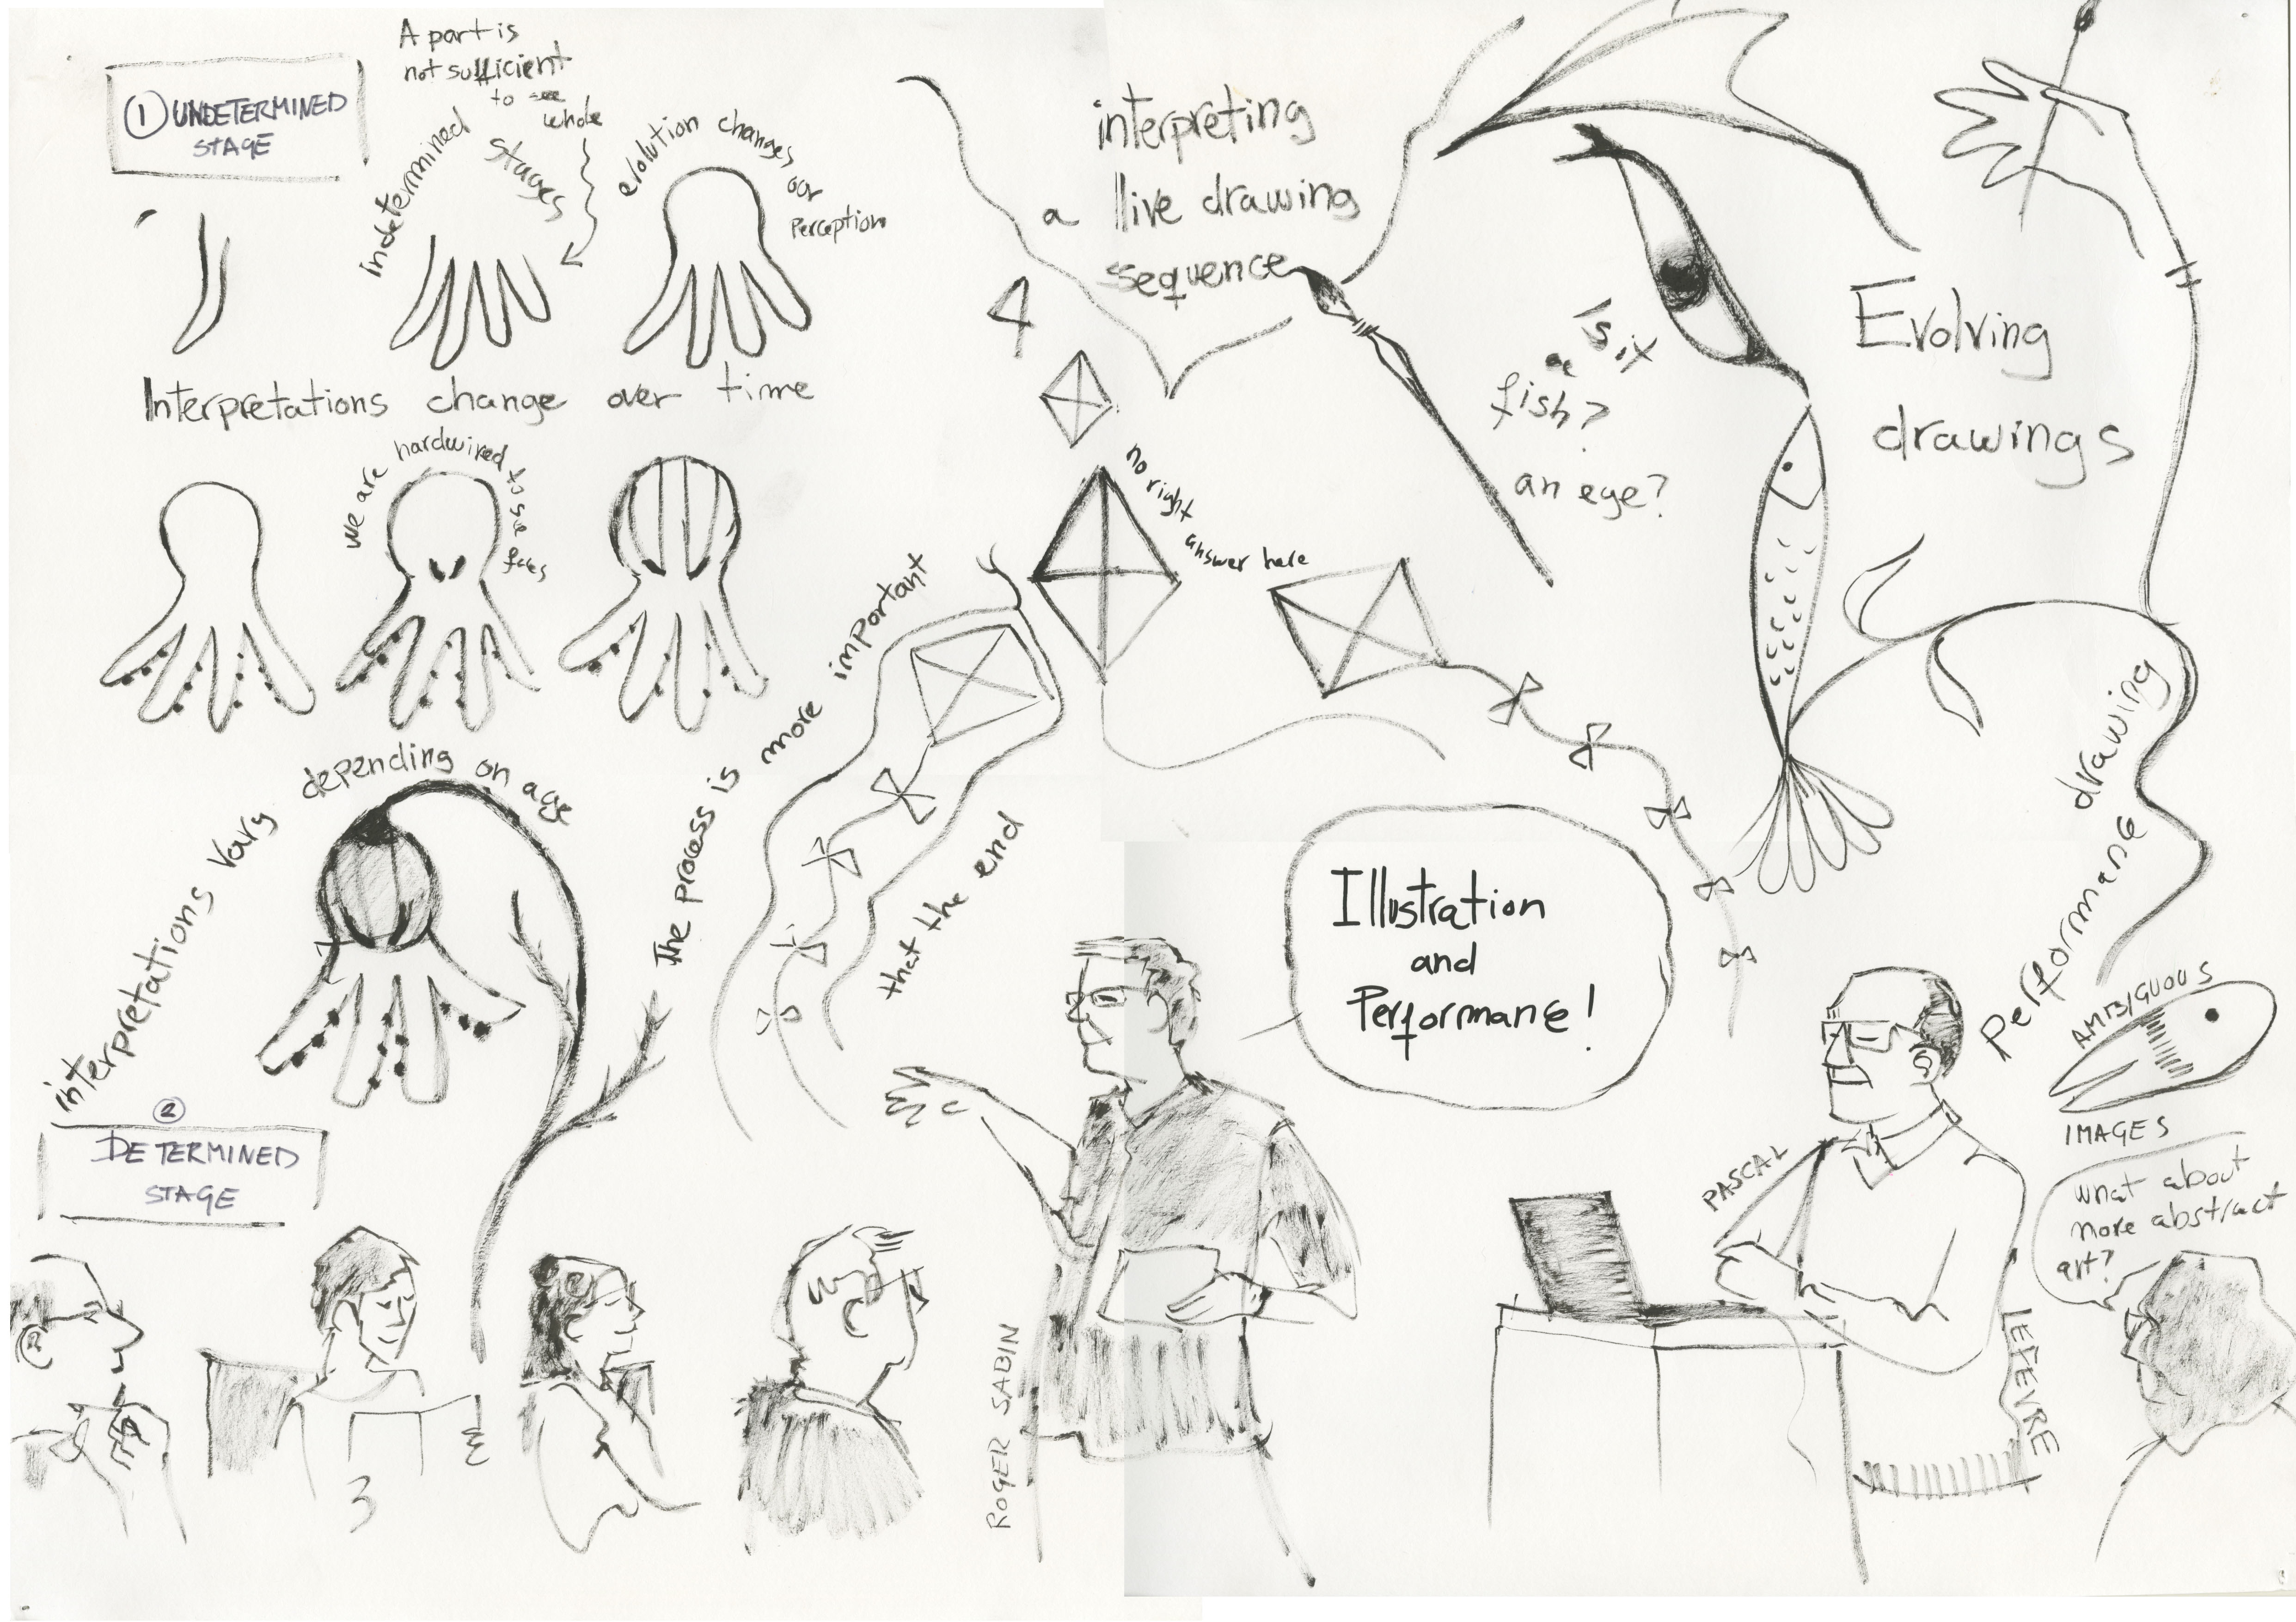 A part is
not sufficient
to see
whole
① UNDETERMINED
STAGE
indetermined
stages
evolution changes
our
Perception
Interpretations change over time
we are hardwired to see
faces
interpretations vary depending on age
②
DETERMINED
STAGE
3
The process is more important
that the end
4
interpreting
a live drawing
sequence
no right
answer here
Is it
a
fish?
an eye?
Evolving
drawings
Performane drawing
Illustration
and
Performane!
ROGER SABIN
PASCAL
LEFEVRE
AMBIGUOUS
IMAGES
what about
more abstract
art?